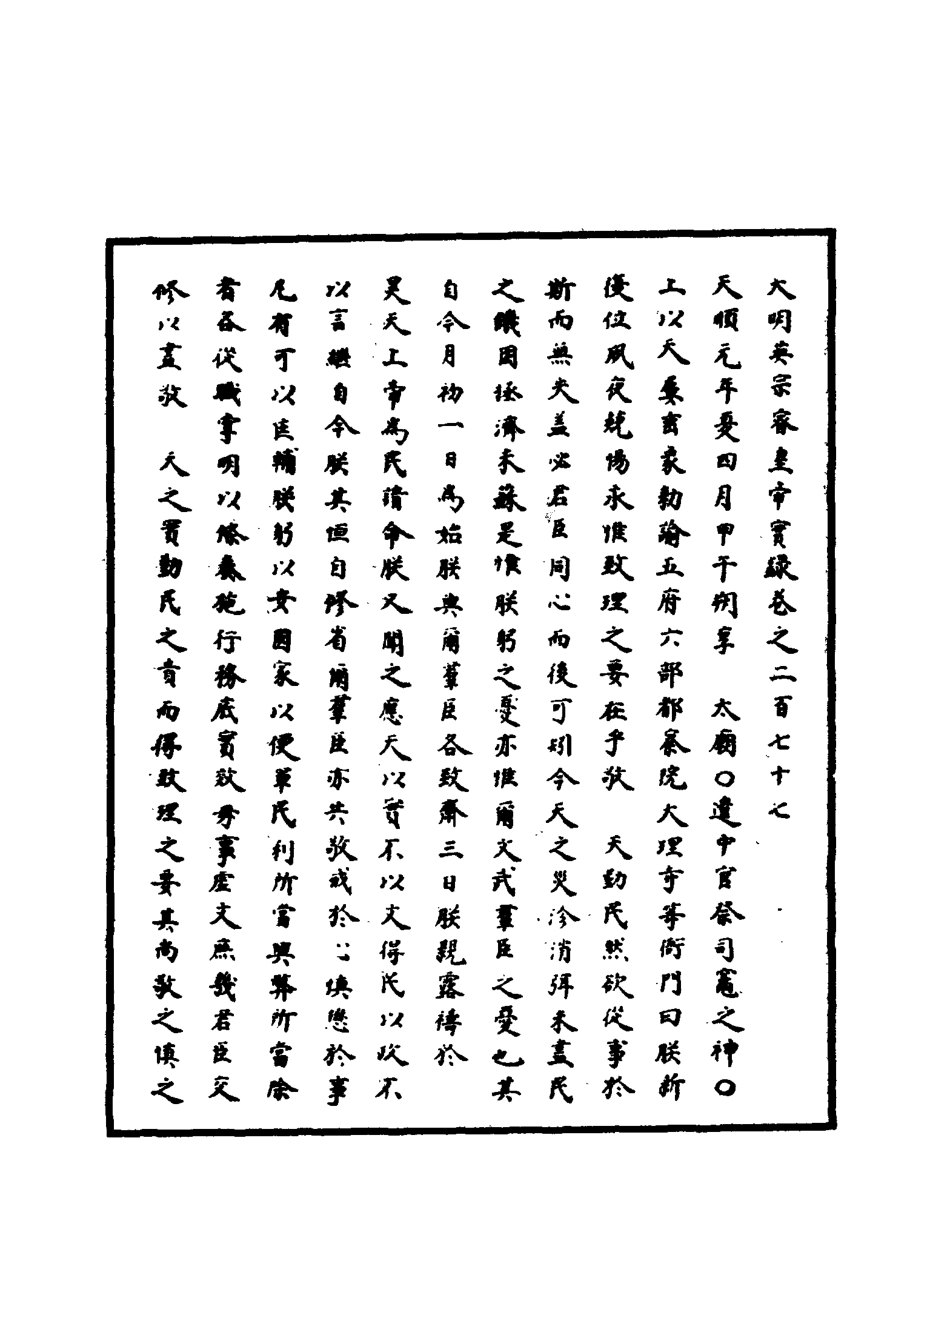 大明英宗睿皇帝實錄卷之二百七十七
天順元年夏四月甲午朔享　太廟〇遣中官祭司竈之神〇
上以天屢示象勑諭五府六部都察院大理寺等衙門曰朕新
復位夙夜兢惕永惟致理之要在乎敬　天勤民然欲從事於
斯而無失盖必君臣同心而後可矧今天之災沴消弭未盡民
之饑困拯濟未蘇是惟朕躬之憂亦惟爾文武羣臣之憂也其
自今月初一日為始朕與爾羣臣各致齋三日朕親露禱於
昊天上帝為民請命朕又聞之應天以實不以文得民以政不
以言繼自今朕其恒自修省爾羣臣亦共敬戒於心慎懋於事
凡有可以匡輔朕躬以安国家以便軍民利所當興弊所當除
者各從職掌明以條奏施行務底實效毋事虛文庶幾君臣交
修以盡敬　天之實勤民之責而得致理之要其尚敬之慎之